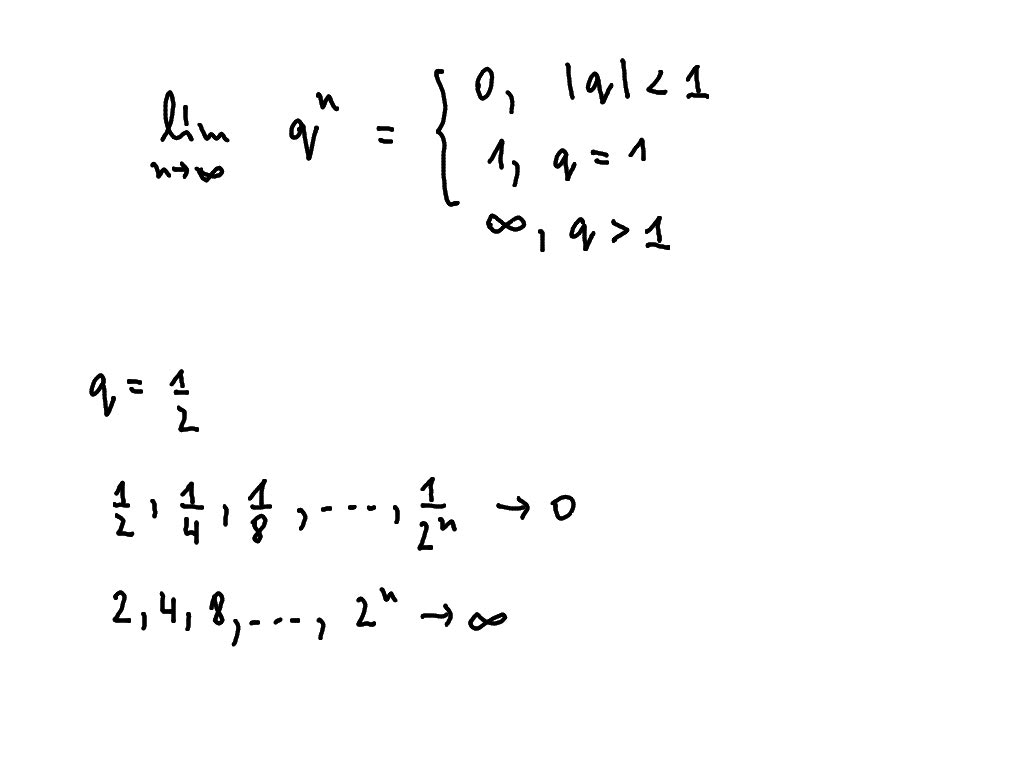 lim n→∞ qⁿ = { 0, |q| < 1
1, q = 1
∞, q > 1
q = 1/2
1/2, 1/4, 1/8, ..., 1/2ⁿ → 0
2, 4, 8, ..., 2ⁿ → ∞